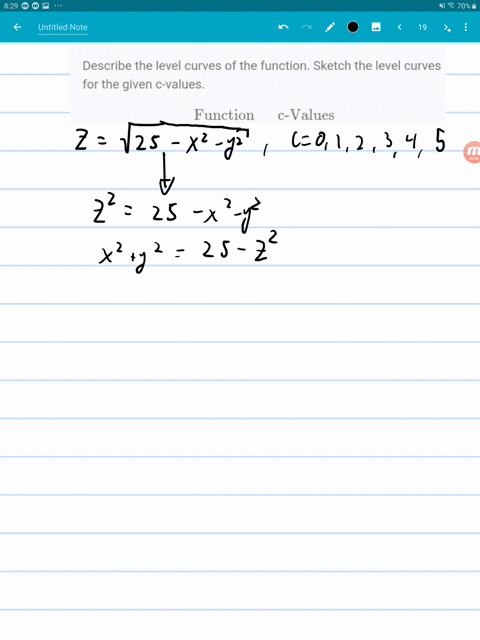 8:29 70%
Untitled Note 19
Describe the level curves of the function. Sketch the level curves
for the given c-values.
Function c-Values
Z = √25 - x² - y² , C=0, 1, 2, 3, 4, 5
Z² = 25 - x² - y²
x² + y² = 25 - Z²